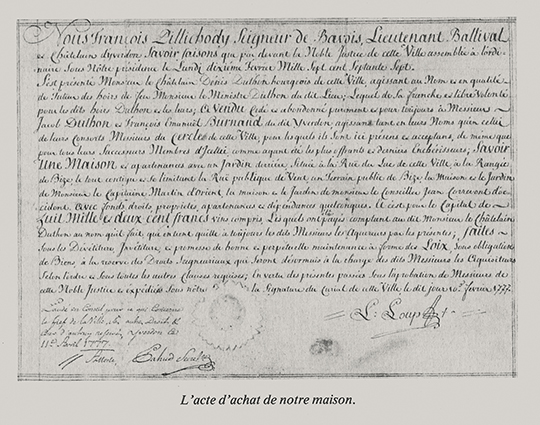 Nous François Pillichody Seigneur de Bavois, Lieutenant Ballival
et Châtelain d'Yverdon Savoir faisons que par devant la Noble Justice de cette Ville assemblée à l'ordi-
naire sous Nôtre présidence le Lundi dixième Fevrier Mille Sept cent Septante Sept.
S'est présenté Monsieur le Châtelain Denis Duthon bourgeois de cette Ville agissant au Nom et en qualité
de Tuteur des hoirs de feu Monsieur le Ministre Duthon du dit Lieu; Lequel de sa franche et libre Volonté
pour les dits hoirs Duthon et les leurs; a Vendu Cedé et abandonné purement et pour toûjours à Messieurs
Jacob Duthon et François Emanuel Burnand du dit Yverdon agissans tant en leurs Noms qu'en celui
de leurs Consorts Messieurs du Cercle de cette Ville; pour lesquels ils sont ici présens et acceptans, de même que
pour tous leurs Successeurs Membres d'Icelui, comme ayant été les plus offrants et derniers Enchérisseurs; savoir
Une Maison et apartenances avec un Jardin derriére, Situé à la Rüe du Lac de cette Ville, à la Rangée
de Bize; le tout contigu et se limitant la Rüe publique de Vent, un Terrain public de Bize, la Maison et le Jardin
de Monsieur le Capitaine Martin d'Orient, la maison et le Jardin de monsieur le Conseiller Jean Correvont d'oc-
cident. Avec fonds, droits, propriétés, apartenances et dépendances quelconques. Et c'est pour le Capital de
huit Mille et deux cent francs vin compris, Lesquels ont été payés comptant au dit Monsieur le Châtelain
Duthon au nom qu'il fait, qui en tient quitte à toûjours les dits Messieurs les Aquereurs par les présentes; faites
sous les Dévêtiture Invêtiture, et promesse de bonne et perpétuelle maintenance à forme des Loix sous obligation
de Biens, à la reserve des Droits Seigneuriaux qui seront désormais à la charge des dits Messieurs les Acquisiteurs
Selon l'ordre et sous toutes autres Clauses requises; En vertu des présentes passées sous l'aprobation de Messieurs de
cette Noble Justice et expédiées sous nôtre la Signature du Curial de cette Ville le dit jour 10e. fevrier 1777.
L: Loup
Laudé en Conseil pour ce qui concerne
le fief de la Ville,
11e. Avril 1777.
L'acte d'achat de notre maison.